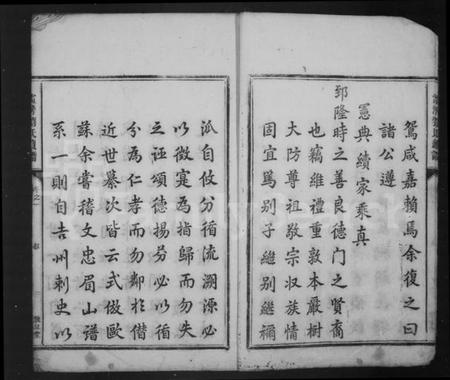 鴛咸嘉賴焉余復之曰
諸公遵
憲典續家乘真
郅隆時之善良德門之賢裔
也竊維禮重敦本嚴樹
大防尊祖敬宗收族情
固宜篤別子繼別繼禰
派自攸分循流溯源必
以徵寔為指歸而勿失
之誣頌德揚芬必以循
分為仁孝而勿鄰於僭
近世纂次皆云式倣歐
蘇余嘗稽文忠眉山譜
系一則自吉州刺史以